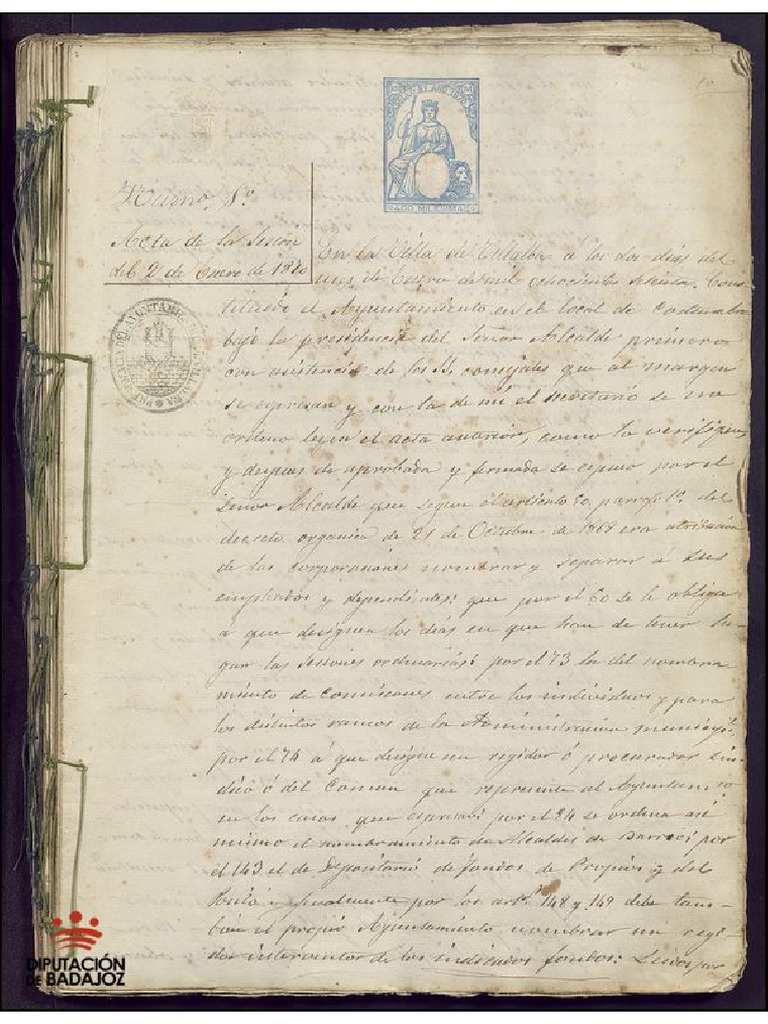 10
400 MILESIMAS
Numo. 1º
Acta de la Sesion
del 2 de Enero de 1870
En la Villa de Villalba a los dos dias del
mes de Enero de mil ochocientos setenta. Cons
tituido el Ayuntamiento en el local de costumbre
bajo la presidencia del Señor Alcalde primero
con asistencia de los SS. concejales que al margen
se espresan y con la de mi el Secretario se me
ordenó leyera el acta anterior, como lo verifiqué
y despues de aprobada y firmada se espuso por el
Señor Alcalde que segun el articulo 50, parrafo 1º del
decreto organico de 21 de Octubre de 1868 era atribucion
de las corporaciones nombrar y separar a sus
empleados y dependientes: que por el 60 se le obliga
á que designen los dias en que han de tener lu-
gar las sesiones ordinarias: por el 73 la del nombra
miento de Comisiones entre los individuos y para
los distintos ramos de la Administracion municipl.
por el 74 á que designe un regidor ó procurador Sin-
dico ó del Comun que represente al Ayuntam.to
en los casos que espresa: por el 24 se ordena asi
mismo el nombramiento de Alcaldes de Barrio: por
el 143 el de Depositario de fondos de Propios y del
Posito y finalmente por los artº. 148 y 149 debe tam-
bien el propio Ayuntamiento nombrar un regi-
dor interventor de los indicados fondos: Leidos por
DIPUTACIÓN
DE BADAJOZ